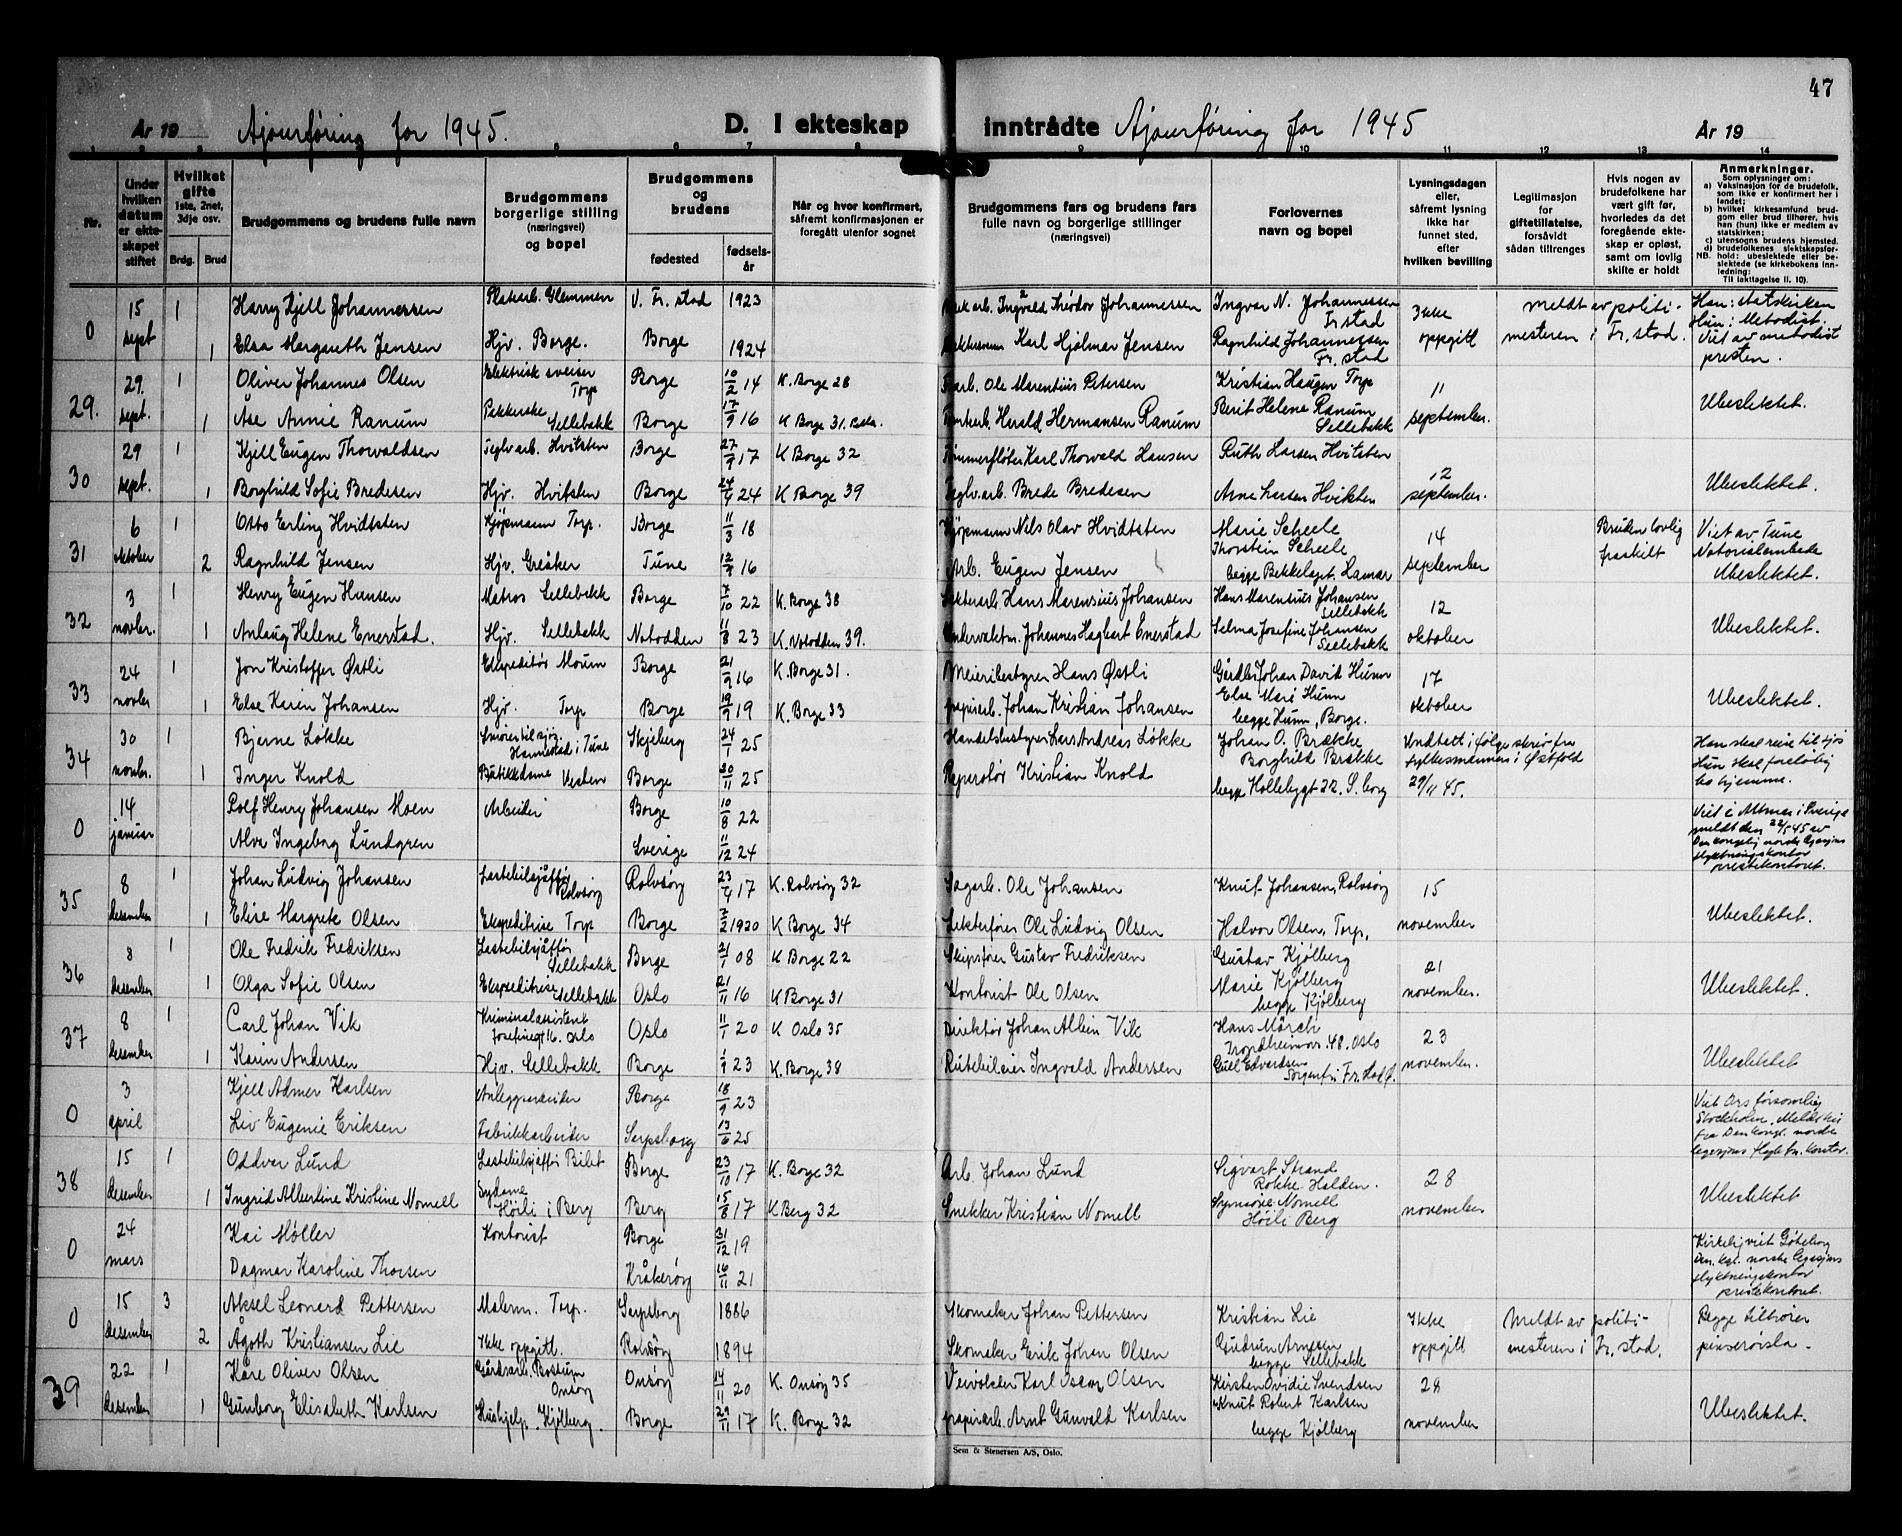 47
År 19 Ajourføring for 1945. D. I ekteskap inntrådte Ajourføring for 1945 År 19
1 2 3 5 6 7 8 9 10 11 12 13 14
Nr.
Under hvilken datum er ekteskapet stiftet
Hvilket gifte 1ste, 2net, 3dje osv.
Brdg. Brud
Brudgommens og brudens fulle navn
Brudgommens borgerlige stilling (næringsvei) og bopel
Brudgommens og brudens
fødested
fødselsår
Når og hvor konfirmert, såfremt konfirmasjonen er foregått utenfor sognet
Brudgommens fars og brudens fars fulle navn og borgerlige stillinger (næringsvei)
Forlovernes navn og bopel
Lysningsdagen eller, såfremt lysning ikke har funnet sted, efter hvilken bevilling
Legitimasjon for giftetillatelse, forsåvidt sådan tiltrenges
Hvis nogen av brudefolkene har vært gift før, hvorledes da det foregående ekteskap er opløst, samt om lovlig skifte er holdt
Anmerkninger.
Som oplysninger om:
a) Vaksinasjon for de brudefolk, som ikke er konfirmert her i landet;
b) hvilket kirkesamfund brudgom eller brud tilhører, hvis han (hun) ikke er medlem av statskirken;
c) utensogns brudens hjemsted.
d) brudefolkenes slektskapsforhold: ubeslektede eller beslektede (se kirkebokens innledning:
NB. Til iakttagelse ll. 10).
0 15 sept 1 Harry Kjell Johannessen Platearb. Glemmen V. Fr.stad 1923 Ingvald Theodor Johannessen Ingvar N. Johannessen Fr.stad Ikke oppgitt meldt av politimesteren i Fr.stad. Han: statskirken
1 Elsa Margareth Jensen Hjv. Borge. Borge 1924 Karl Hjalmar Jensen Ragnhild Johannessen Fr.stad Hun: Metodist. Viet av metodist presten.
29. 29. sept. 1 Oliver Johannes Olsen Elektrisk sveiser Torp Borge 10/2 14 K. Borge 28 Ole Marentius Petersen Kristian Haugen Torp 11 september. Ubeslektet.
1 Åse Annie Ranum Pakkerske Sellebakk Borge 17/9 16 K Borge 31. Harald Hermansen Ranum Berit Helene Ranum Sellebakk
30 29 sept. 1 Kjell Eugen Thorvaldsen Teglv.arb. Hvitsten Borge 27/9 17 K Borge 32 Tømmerfløter Karl Thorvald Hansen Ruth Larsen Hvitsten 12 september. Ubeslektet.
1 Borghild Sofie Bredesen Hjv. Hvitsten Borge 24/4 24 K Borge 39 Teglv.arb. Brede Bredesen Arne Larsen Hvitsten
31 6 oktober 1 Otto Erling Hvidtsten Kjøpmann Torp. Borge 11/3 18 Kjøpmann Nils Olav Hvidtsten Marie Scheele 14 september Bruden lovlig fraskilt Viet av Tune Notorialembede Ubeslektet.
2 Ragnhild Jensen Hjv. Greåker Tune 12/9 16 Arb. Eugen Jensen Thorstein Scheele begge Bekkelaget. Hamar
32 3 novbr. 1 Henry Eugen Hansen Matros Sellebakk Borge 7/10 22 K. Borge 38 Hans Marensius Johansen Hans Marensius Johansen Sellebakk 12 oktober Ubeslektet.
1 Anlaug Helene Enerstad. Hjv. Sellebakk Notodden 11/8 23 K. Notodden 39. Johannes Hagbart Enerstad Selma Josefine Johansen Sellebakk
33 24 novbr 1 Jon Kristoffer Østli Ekspeditør Moum Borge 21/9 16 K. Borge 31. Meieribestyrer Hans Østli Gårdbr. Johan David Hunn 17 oktober Ubeslektet.
1 Else Karin Johansen Hjv. Torp Borge 19/9 19 K. Borge 33 papirarb. Johan Kristian Johansen Else Marie Hunn begge Hunn, Borge.
34 30 novbr. 1 Bjarne Løkke Smører til sjøs. Hannestad i Tune Skjeberg 24/1 25 Handelsbestyrer Lars Andreas Løkke Johan O. Brække Unntatt ifølge skriv fra fylkesmannen i Østfold 29/11 45. Han skal reise til sjøs
1 Inger Knold Butikkdame Vesten Borge 20/11 25 Reperatør Kristian Knold Borghild Brække begge Hollebygt 22. S.borg Hun skal foreløbig bo hjemme.
0 14 januar Rolf Henry Johansen Moen Arbeider Borge 10/8 22 Viet i Sverige meldt den 22/5 45 av Den kongelig norske legasjons flyktningskontor prestekontoret.
Alva Ingeborg Lundgren Sverige 11/12 24
35 8 desember 1 Johan Ludvig Johansen Lastebilsjåfør Rolvsøy Rolvsøy 23/4 17 K. Rolvsøy 32 Sagarb. Ole Johansen Knut Johansen, Rolvsøy 15 november Ubeslektet.
1 Elise Margrete Olsen Ekspeditrise Torp Borge 7/2 1920 K Borge 34 Lekterfører Ole Ludvig Olsen Halvor Olsen, Torp.
36 8 desember 1 Ole Fredrik Fredriksen Lastebilsjåfør Sellebakk Borge 21/1 08 K Borge 22 Skipsfører Gustav Fredriksen Gustav Kjølberg 21 november. Ubeslektet.
1 Olga Sofie Olsen Ekspeditrise Sellebakk Oslo 21/11 16 K Borge 31 Kontorist Ole Olsen Marie Kjølberg begge Kjølberg
37 8 desember 1 Carl Johan Vik Kriminalassistent Josefinegt 16. Oslo Oslo 11/1 20 K Oslo 35 Direktør Johan Albin Vik Hans Mørch Trondheimsv. 48. Oslo 23 november. Ubeslektet
1 Karin Andersen Hjv. Sellebakk Borge 1/9 23 K. Borge 38 Rutebileier Ingvald Andersen Gull Edvardsen Sorgenfri Fr.stad Ø.
0 3 april Kjell Admar Karlsen Anleggsarbeider Borge 18/9 23 Viet forsamling Stockholm. fra Den kongl. norske legasjons kontor.
Liv Eugenie Eriksen Fabrikkarbeider Sarpsborg 13/6 25
38 15 desember 1 Oddvar Lund Lastebilsjåfør Bilet Borge 23/10 17 K. Borge 32 Arb. Johan Lund Sigvart Strand Rokke Halden. 28 november Ubeslektet
1 Ingrid Albertine Kristine Nomell Sydame Høili i Berg Berg 15/8 17 K Berg 32 Snekker Kristian Nomell Synnøve Nomell Høili Berg
0 24 mars Kai Møller Kontorist Borge 31/12 19 Kirkelig viet Göteborg Den kgl. norske legasjons flyktningskontor prestekontoret.
Dagmar Karoline Thorsen Kråkerøy 16/11 21
0 15 desember 3 Aksel Leonard Pettersen Malerm. Torp. Sarpsborg 1886 Skomaker Johan Pettersen Kristian Lie Ikke oppgitt Meldt av politimesteren i Fr.stad. Begge tilhører pinserørsla.
2 Ågoth Kristiansen Lie Ikke oppgitt. Rolvsøy 1894 Skomaker Erik Johan Olsen Gudrun Arnesen begge Sellebakk
39 22 desember 1 Kåre Oliver Olsen Gårdsarb. Onsøy Onsøy 14/11 20 K. Onsøy 35 Veivokter Karl Oscar Olsen Kirsten Ovidie Svendsen 28 november Ubeslektet.
1 Gunborg Elisabeth Karlsen Hushjelp. Kjølberg. Borge 29/11 17 K. Borge 32 papirarb. Arnt Gunvald Karlsen Knut Robert Karlsen begge Kjølberg
Sem & Stenersen A/S, Oslo.